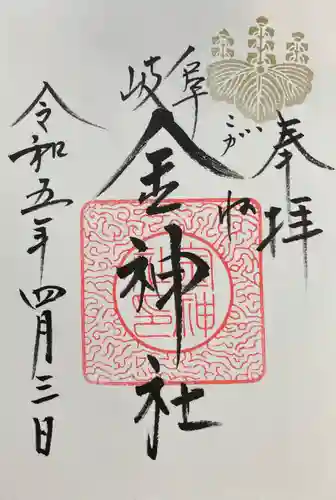 奉拝
こがね
岐阜
金神社
令和五年四月三日